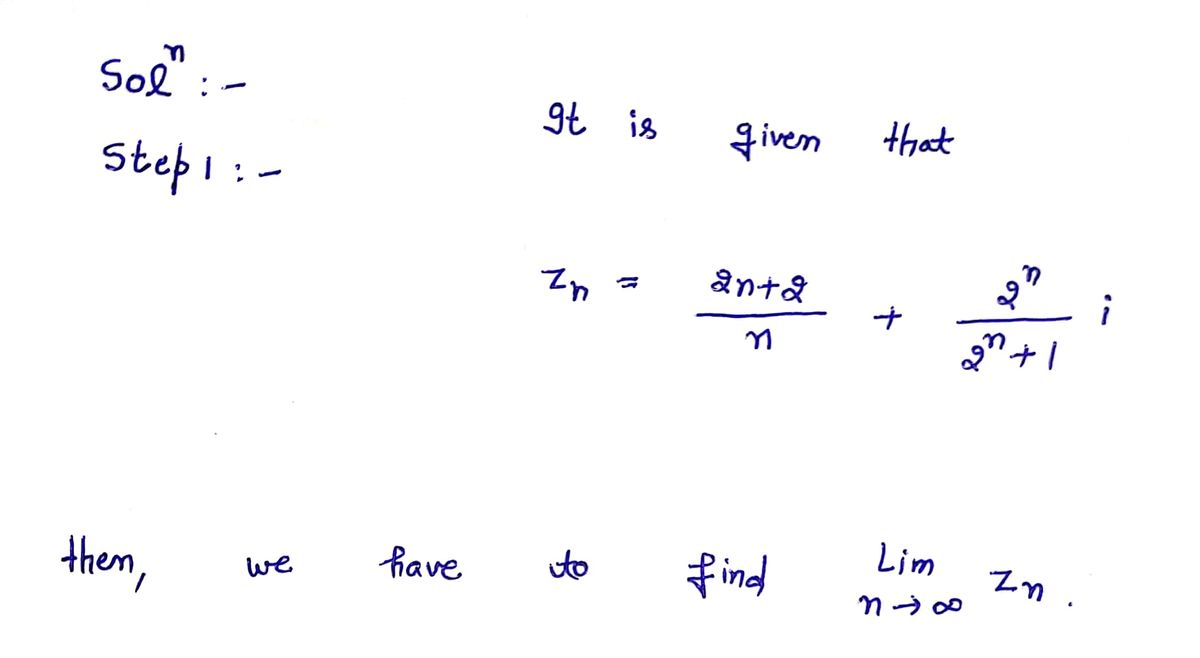 Solⁿ :-
Step 1 :-
It is given that
zₙ = (2n+2)/n + 2ⁿ/(2ⁿ+1) i
then, we have to find Lim n→∞ zₙ.